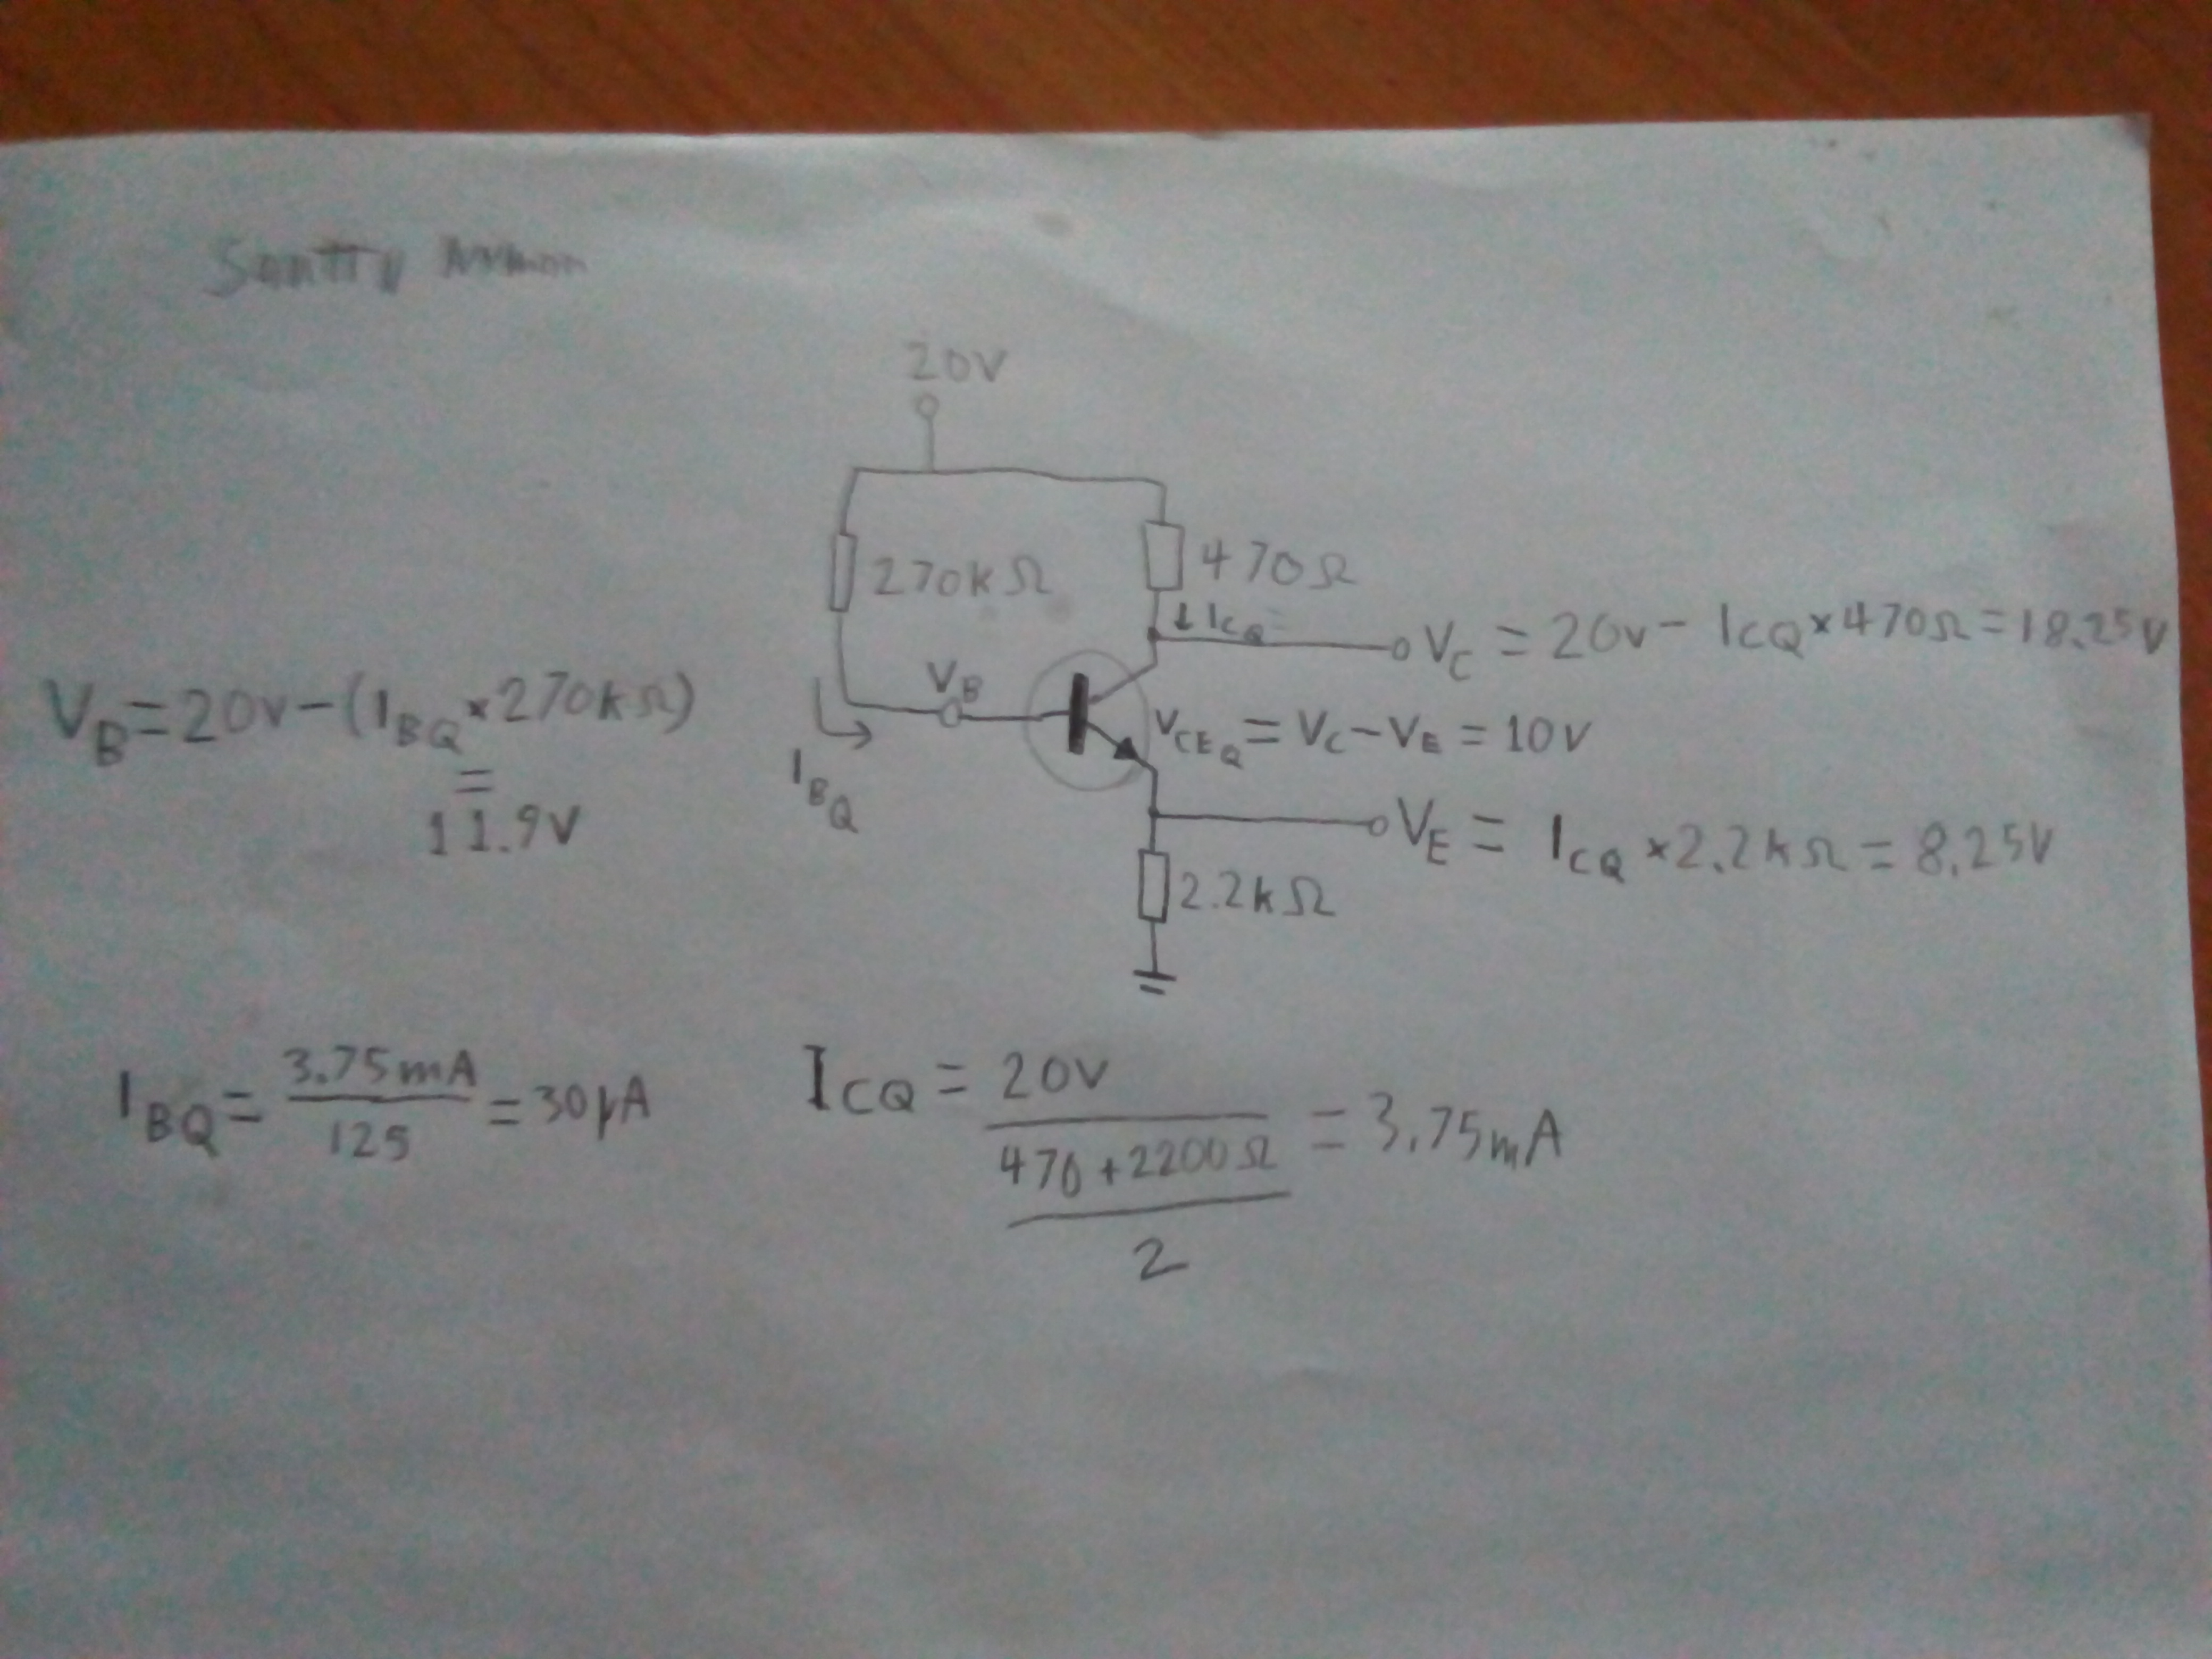 20V
270kΩ
470Ω
↓ICQ
VC = 20v - ICQ×470Ω = 18.25V
VB
VB = 20v - (IBQ×270kΩ)
=
11.9V
VCEQ = VC - VE = 10V
IBQ
VE = ICQ ×2.2kΩ = 8.25V
2.2kΩ
IBQ = 3.75mA / 125 = 30μA
ICQ = 20V / 470+2200Ω / 2 = 3.75mA